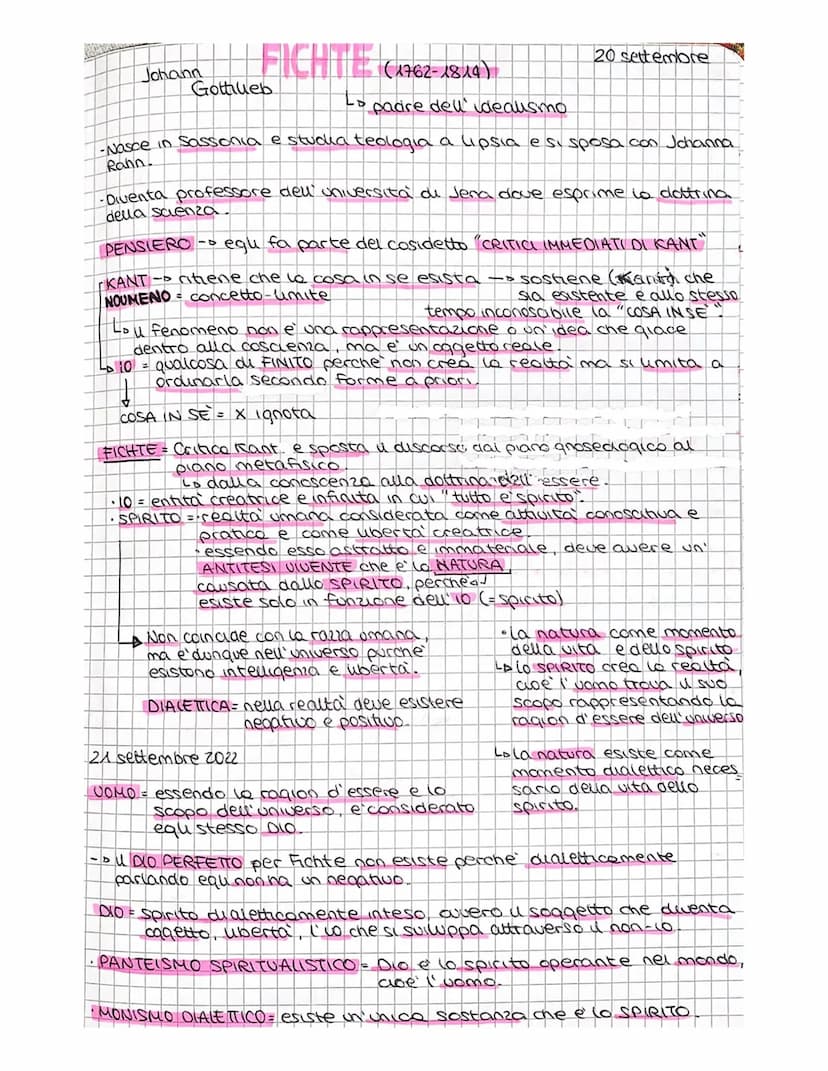 20 settembre
Johann Gottlieb FICHTE (1762-1814)
↳ padre dell'idealismo
·Nasce in Sassonia e studia teologia a Lipsia e si sposa con Johanna
Rahn.
·Diventa professore dell'università di Jena dove esprime la dottrina
della scienza.
PENSIERO -> egli fa parte del cosidetto "CRITICI IMMEDIATI DI KANT"
KANT -> ritiene che la cosa in se esista -> sostiene (Kant) che
NOUMENO = concetto-limite
sia esistente e allo stesso
tempo inconosabile la "COSA IN SÈ".
↳ il fenomeno non e' una rappresentazione o un'idea che giace
dentro alla coscienza, ma e' un oggetto reale.
↳ IO = qualcosa di FINITO perche' non crea la realta' ma si limita a
ordinarla secondo forme a priori.
↓
COSA IN SÈ = X ignota
FICHTE = Critica Kant e sposta il discorso dal piano gnoseologico al
piano metafisico.
↳ dalla conoscenza alla dottrina dell'essere.
·IO = entita' creatrice e infinita in cui "tutto e' spirito".
·SPIRITO = realta' umana considerata come attivita' conoscitiva e
pratica e come liberta' creatrice.
·essendo esso astratto e immateriale, deve avere un'
ANTITESI VIVENTE che e' la NATURA
causata dallo SPIRITO, perche'
esiste solo in funzione dell'IO (=spirito)
↳ Non coincide con la razza umana,
ma e' dunque nell'universo purche'
esistono intelligenza e liberta'.
DIALETTICA = nella realta' deve esistere
negativo e positivo.
·la natura come momento
della vita e dello spirito
↳ lo SPIRITO crea la realta',
cioe' l'uomo trova il suo
scopo rappresentando la
ragion d'essere dell'universo
↳ la natura esiste come
momento dialettico neces
sario della vita dello
spirito.
21 settembre 2022
UOMO = essendo la ragion d'essere e lo
scopo dell'universo, e' considerato
egli stesso DIO.
-> il DIO PERFETTO per Fichte non esiste perche' dialetticamente
parlando egli non ha un negativo.
DIO = spirito dialetticamente inteso, ovvero il soggetto che diventa
oggetto, liberta', l'io che si sviluppa attraverso il non-io.
·PANTEISMO SPIRITUALISTICO = Dio e' lo spirito operante nel mondo,
cioe' l'uomo.
·MONISMO DIALETTICO = esiste un'unica sostanza che e' lo SPIRITO.